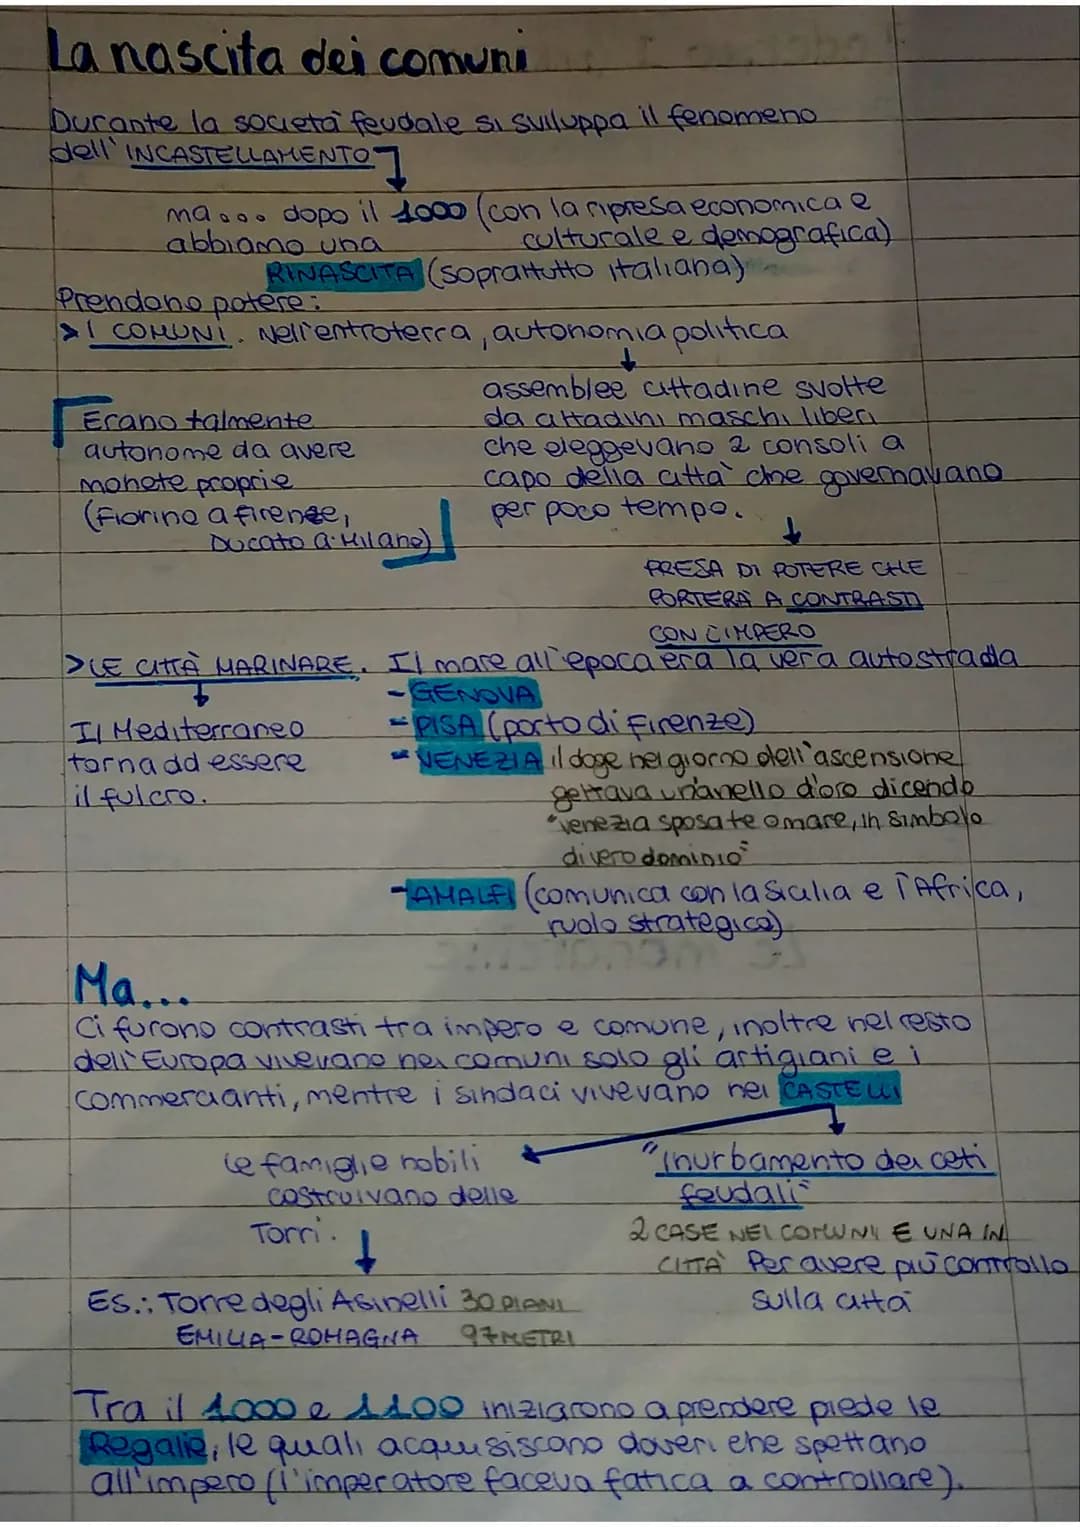 La nascita dei comuni
Durante la società feudale si sviluppa il fenomeno
dell'INCASTELLAMENTO
ma... dopo il 1000 (con la ripresa economica e
abbiamo una culturale e demografica)
RINASCITA (soprattutto italiana)
Prendono potere:
> I COMUNI. Nell'entroterra, autonomia politica
assemblee cittadine svolte
da cittadini maschi liberi
che eleggevano 2 consoli a
capo della città che governavano
per poco tempo.
Erano talmente
autonome da avere
monete proprie
(Fiorino a firenze,
Ducato a Milano)
PRESA DI POTERE CHE
PORTERÀ A CONTRASTI
CON L'IMPERO
> LE CITTÀ MARINARE. Il mare all'epoca era la vera autostrada
- GENOVA
- PISA (porto di Firenze)
- VENEZIA il doge nel giorno dell'ascensione
gettava un'anello d'oro dicendo
"venezia sposa te o mare, in simbolo
di vero dominio"
- AMALFI (comunica con la Sicilia e l'Africa,
ruolo strategico)
Il Mediterraneo
torna ad essere
il fulcro.
Ma...
Ci furono contrasti tra impero e comune, inoltre nel resto
dell'Europa vivevano nei comuni solo gli artigiani e i
commercianti, mentre i sindaci vivevano nei CASTELLI
le famiglie nobili
costruivano delle
Torri.
"inurbamento dei ceti
feudali"
2 CASE NEI COMUNI E UNA IN
CITTÀ Per avere più controllo
sulla città
Es.: Torre degli Asinelli 30 PIANI
EMILIA-ROMAGNA 97 METRI
Tra il 1000 e 1100 iniziarono a prendere piede le
Regalie, le quali acquisiscono doveri che spettano
all'impero (l'imperatore faceva fatica a controllare).